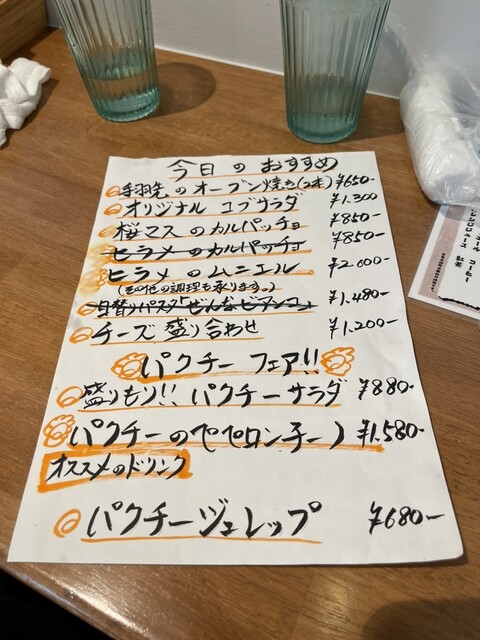 今日のおすすめ
◎手羽先のオーブン焼き(2本) ¥650-
◎オリジナル コブサラダ ¥1.300
◎桜マスのカルパッチョ ¥850-
ヒラメのカルパッチョ ¥850-
ヒラメのムニエル ¥2.000-
(その他の調理も承ります。)
日替りパスタ「どんなビアンコ」 ¥1.480-
◎チーズ盛り合わせ ¥1.200-
パクチーフェア!!
◎盛りもり!! パクチーサラダ ¥880-
パクチーのペペロンチーノ ¥1.580-
オススメのドリンク
◎パクチージュレップ ¥680-
コーヒー
紅茶